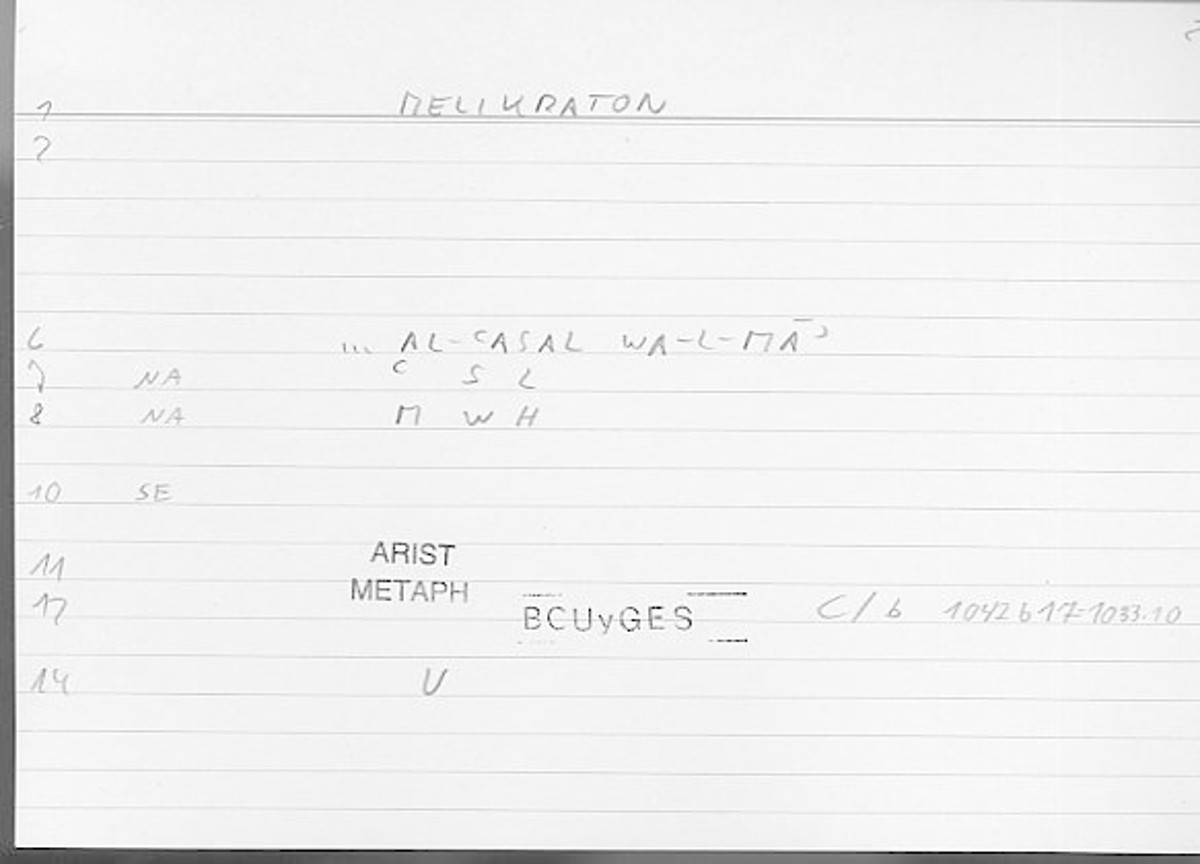 1 MELIKRATON
2
6 ... AL-ʿASAL WA-L-MĀʾ
7 NA ʿ S L
8 NA M W H
10 SE
11 ARIST
METAPH
12 BCUyGES C/b 1042b17=1033.10
14 U